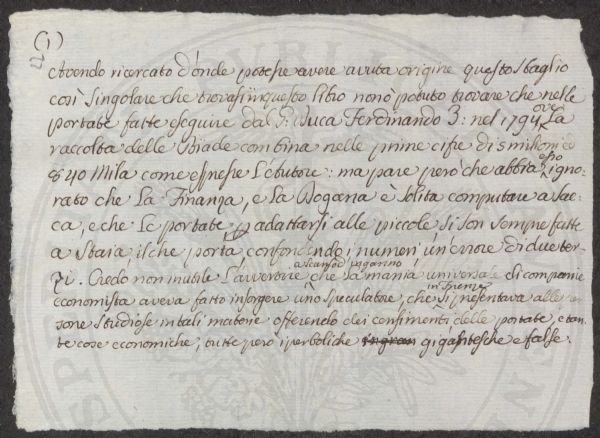 (1)
Avendo ricercato d'onde potesse avere avuta origine questo sbaglio
così singolare che trovasi in questo libro non ò potuto trovare che nelle
portate fatte eseguire dal G. Duca Ferdinando 3: nel 1794 ove La
raccolta delle Biade combina nelle prime cifre di 5 milioni
840 Mila come espresse L'Autore: ma pare però che abbia esso igno-
rato che La Finanza, e La Dogana è solita computare a Sac-
ca, e che Le portate per adattarsi alle piccole si son sempre fatte
a Staia, il che porta confondendo i numeri un errore di due ter-
zi. Credo non inutile L'avvertire a scanso d'inganno che La mania universale di comparire
economista aveva fatto insorgere uno Speculatore, che in Firenze si presentava alle per-
sone Studiose in tali materie offerendo dei della portate, e tan-
te cose economiche; tutte però iperboliche gigantesche e false.